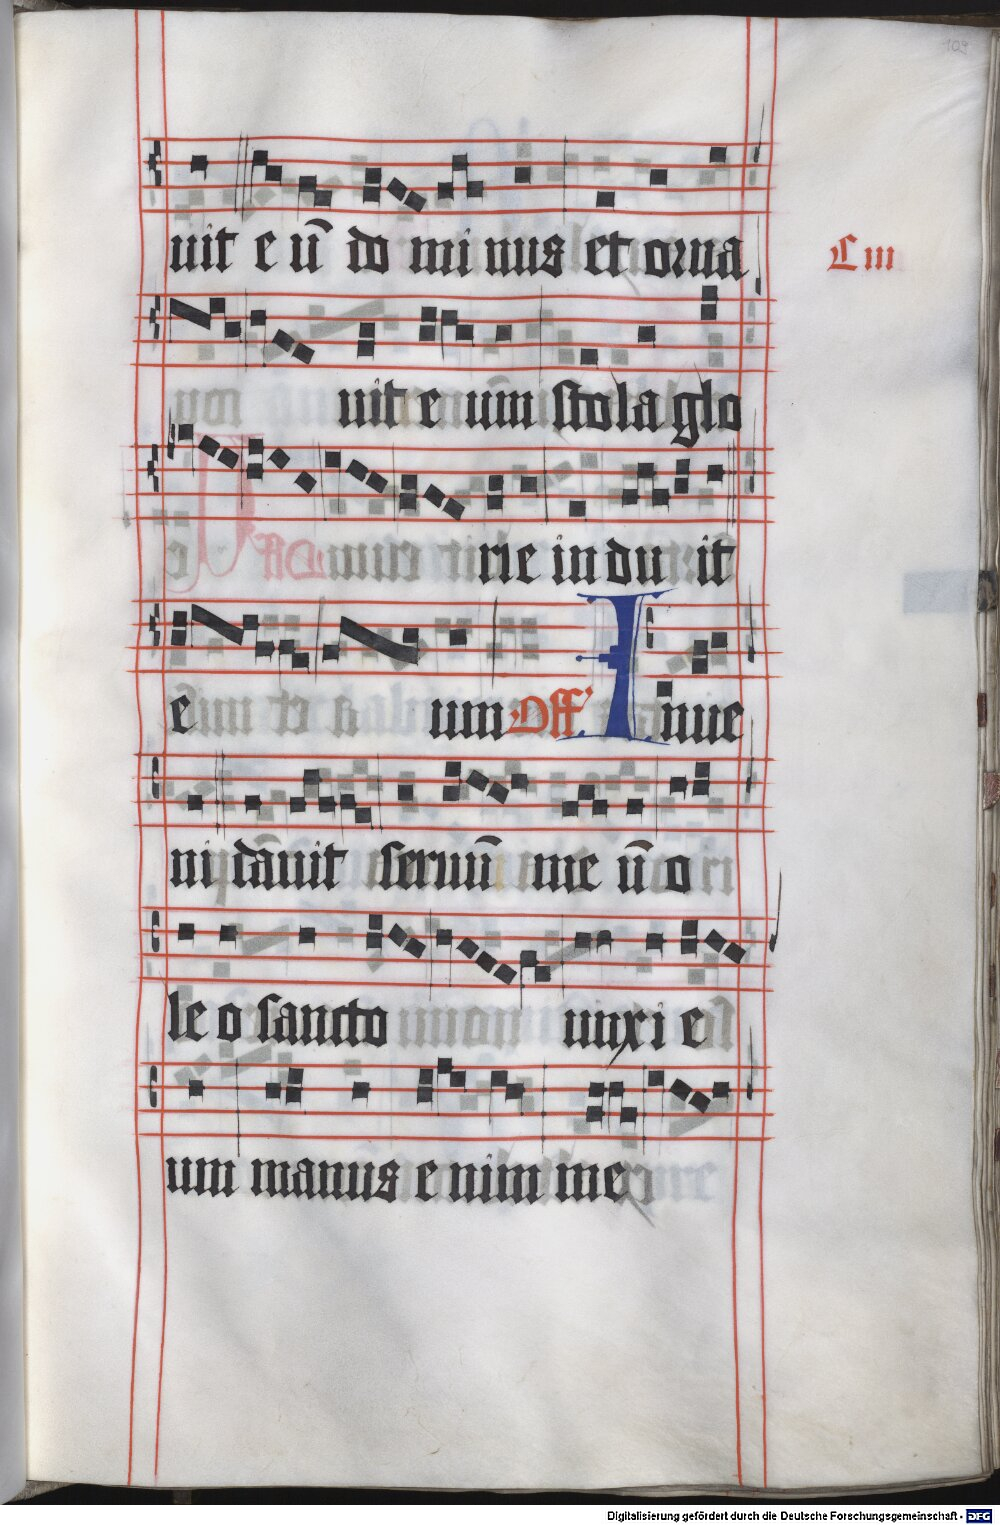 109
uit e ū do mi nus et orna
C iii
uit e um stola glo
rie in du it
e um Off' Inue
ni dāuit seruū me ū o
le o sancto unxi e
um manus e nim me
Digitalisierung gefördert durch die Deutsche Forschungsgemeinschaft - DFG